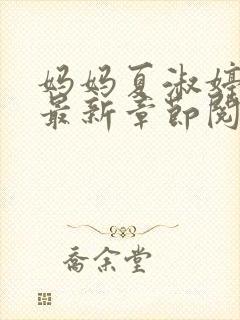 妈妈夏淑婷
最新章节阅
乔余堂